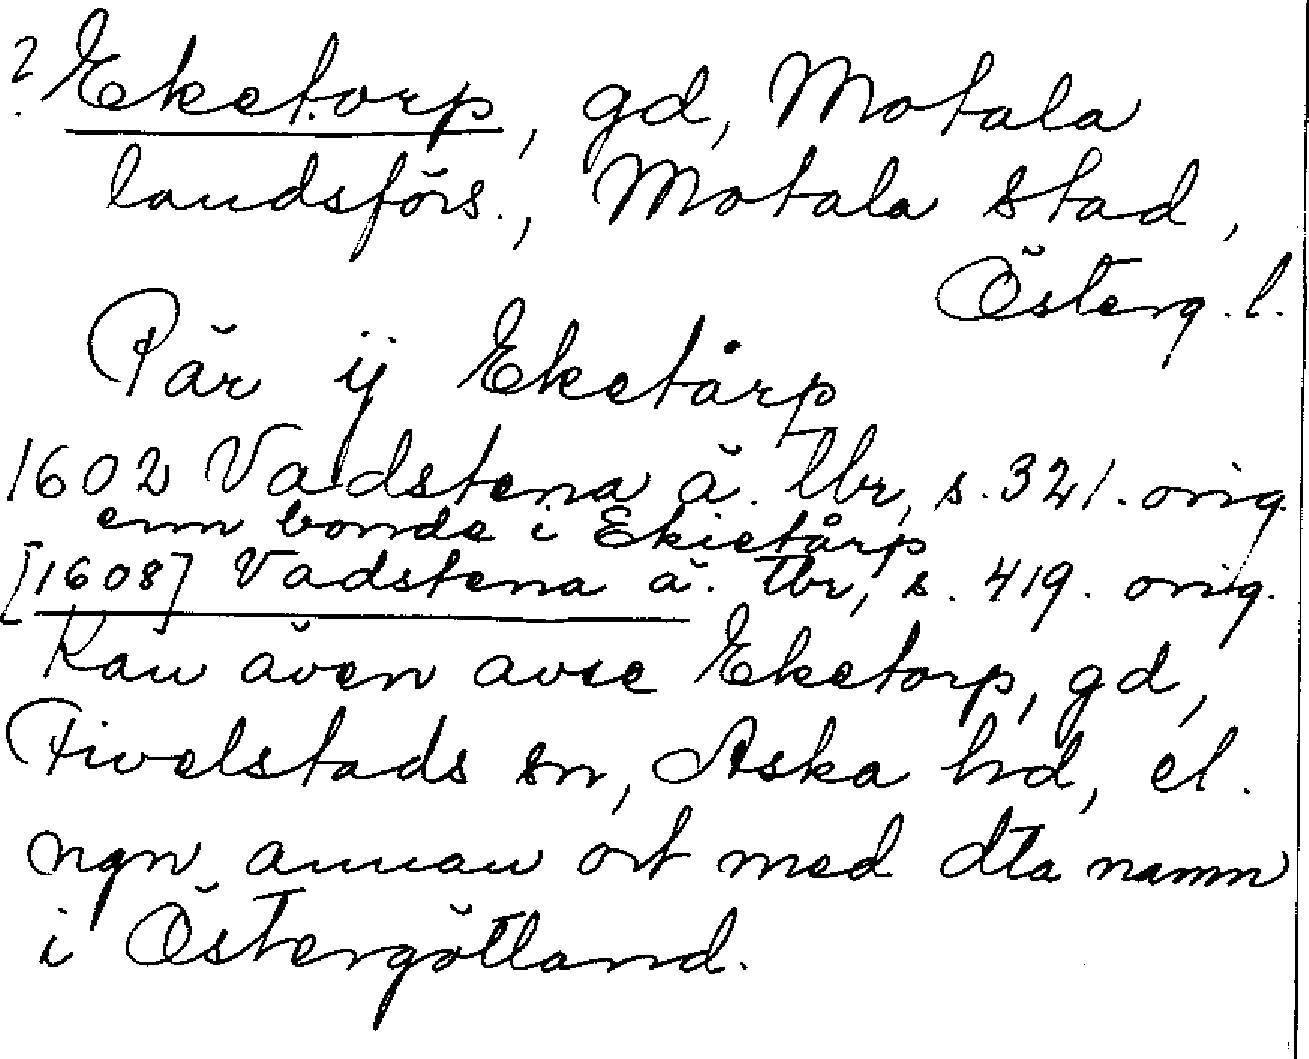 ? Eketorp, gd, Motala
landsförs., Motala stad,
Österg. l.
Pär ij Eketårp
1602 Vadstena ä. tbr, s. 321. orig.
enn bonde i Ekietårp
[1608] Vadstena ä. tbr, s. 419. orig.
Kan även avse Eketorp, gd,
Fivelstads sn, Aska hd, el.
ngn annan ort med dta namn
i Östergötland.